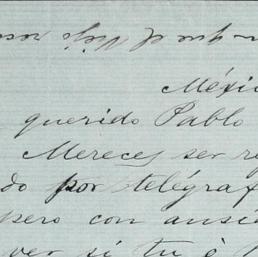 que el Viejo
Méxi
querido Pablo
Mereces ser re
do por telégraf
pero con ansi
ver si tu ó